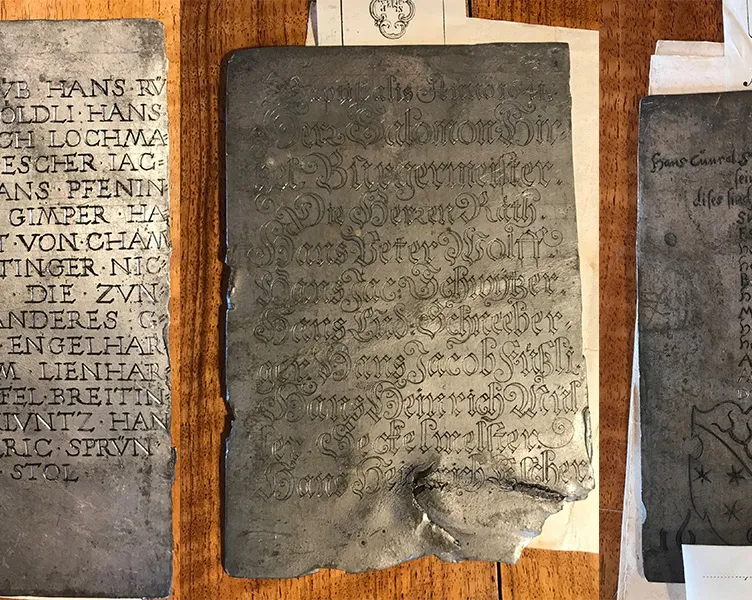 ŨB HANS·RŨ
ÖLDLI·HANS
GH LOCHMA
ESCHER IAC=
ANS·PFENIN
GIMPER·HA
T·VON·CHAM
TINGER·NIC
DIE·ZVN
ANDERES·G
ENGELHAR
M LIENHAR
FEL·BREITIN
KIVNTZ·HAN
RIC·SPRŨN
STOL
Herr Salomon Hir-
Bürgermeister.
Die Herren Räth.
Hans Peter Wolff.
Hans Jac: Schwÿtzer
Hans Lud: Schneeber-
ger Hans Jacob Füßli
Hans Heinrich
Seckelmeister
Hans Heinrich Escher
Hans Cünrat
dises